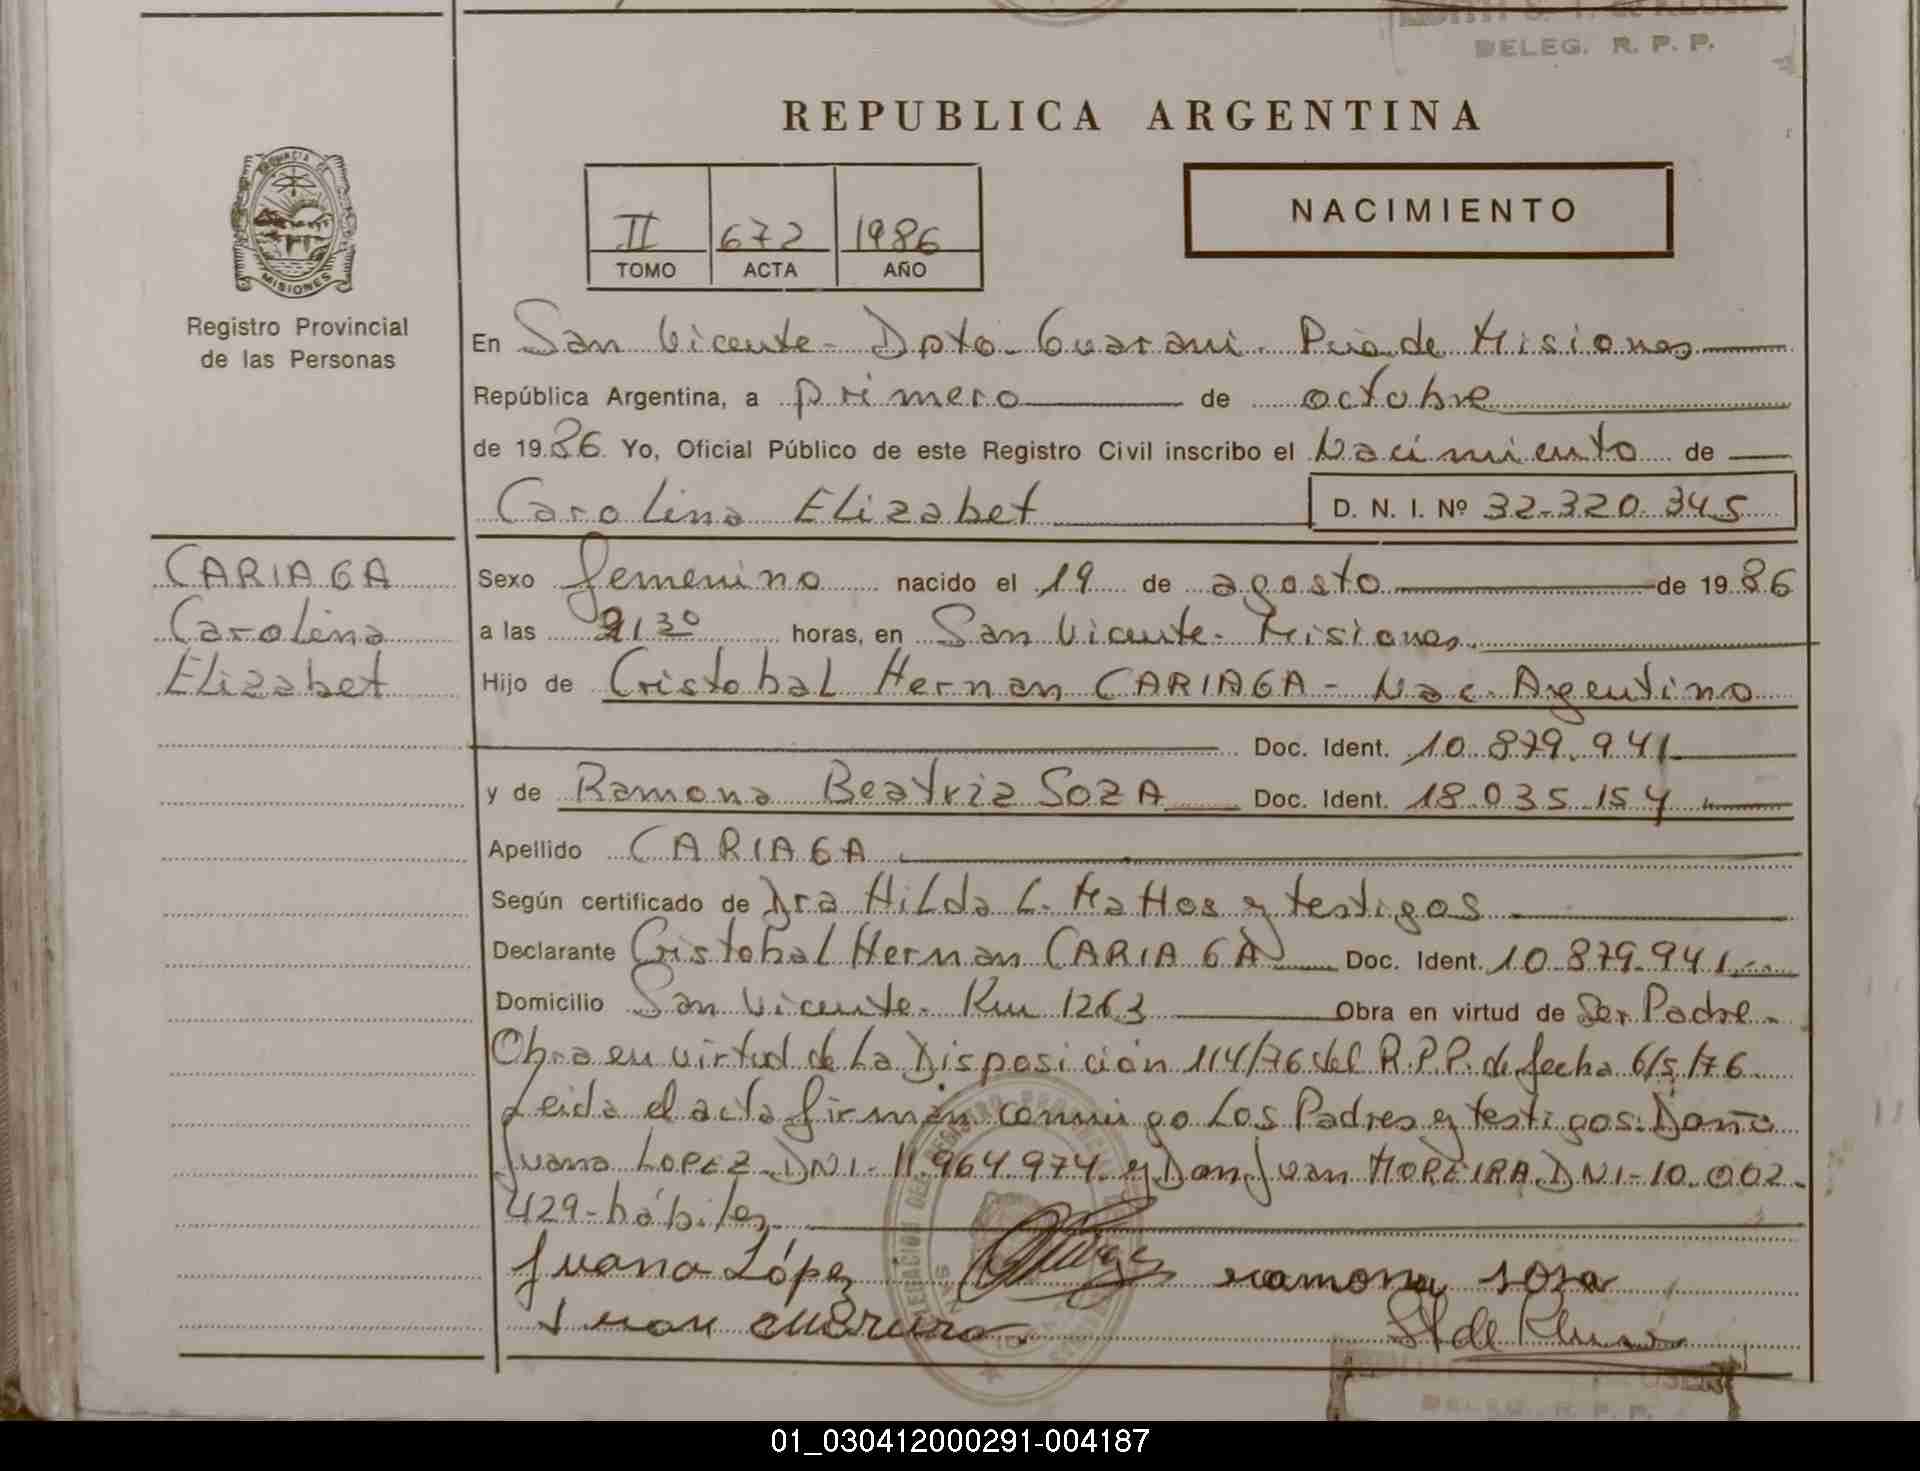 DELEG. R. P. P.
REPUBLICA ARGENTINA
II 672 1986
TOMO ACTA AÑO
NACIMIENTO
MISIONES
Registro Provincial
de las Personas
En San Vicente - Dpto. Guarani. Pcia de Misiones
República Argentina, a primero de octubre
de 1986 Yo, Oficial Público de este Registro Civil inscribo el Nacimiento de
Carolina Elizabet D. N. I. Nº 32-320.345
CARIAGA
Carolina
Elizabet
Sexo femenino nacido el 19 de agosto de 1986
a las 21,30 horas, en San Vicente - Misiones.
Hijo de Cristobal Hernan CARIAGA - Nac. Argentino
Doc. Ident. 10.879.941
y de Ramona Beatriz SOZA Doc. Ident. 18.035.154
Apellido CARIAGA
Según certificado de Dra Hilda L. Mattos y testigos
Declarante Cristobal Hernan CARIAGA Doc. Ident. 10.879.941
Domicilio San Vicente - Km 1263 Obra en virtud de Ser Padre.
Obra en virtud de la Disposición 114/76 del R.P.P. de fecha 6/5/76
Leida el acta firman conmigo Los Padres y testigos: Doña
Juana LOPEZ - DNI - 11.964.974. y Don Juan MOREIRA DNI - 10.002.
429 - hábiles.
Juana López ramona sosa
Juan
DELEG. R. P. P.
01_030412000291-004187